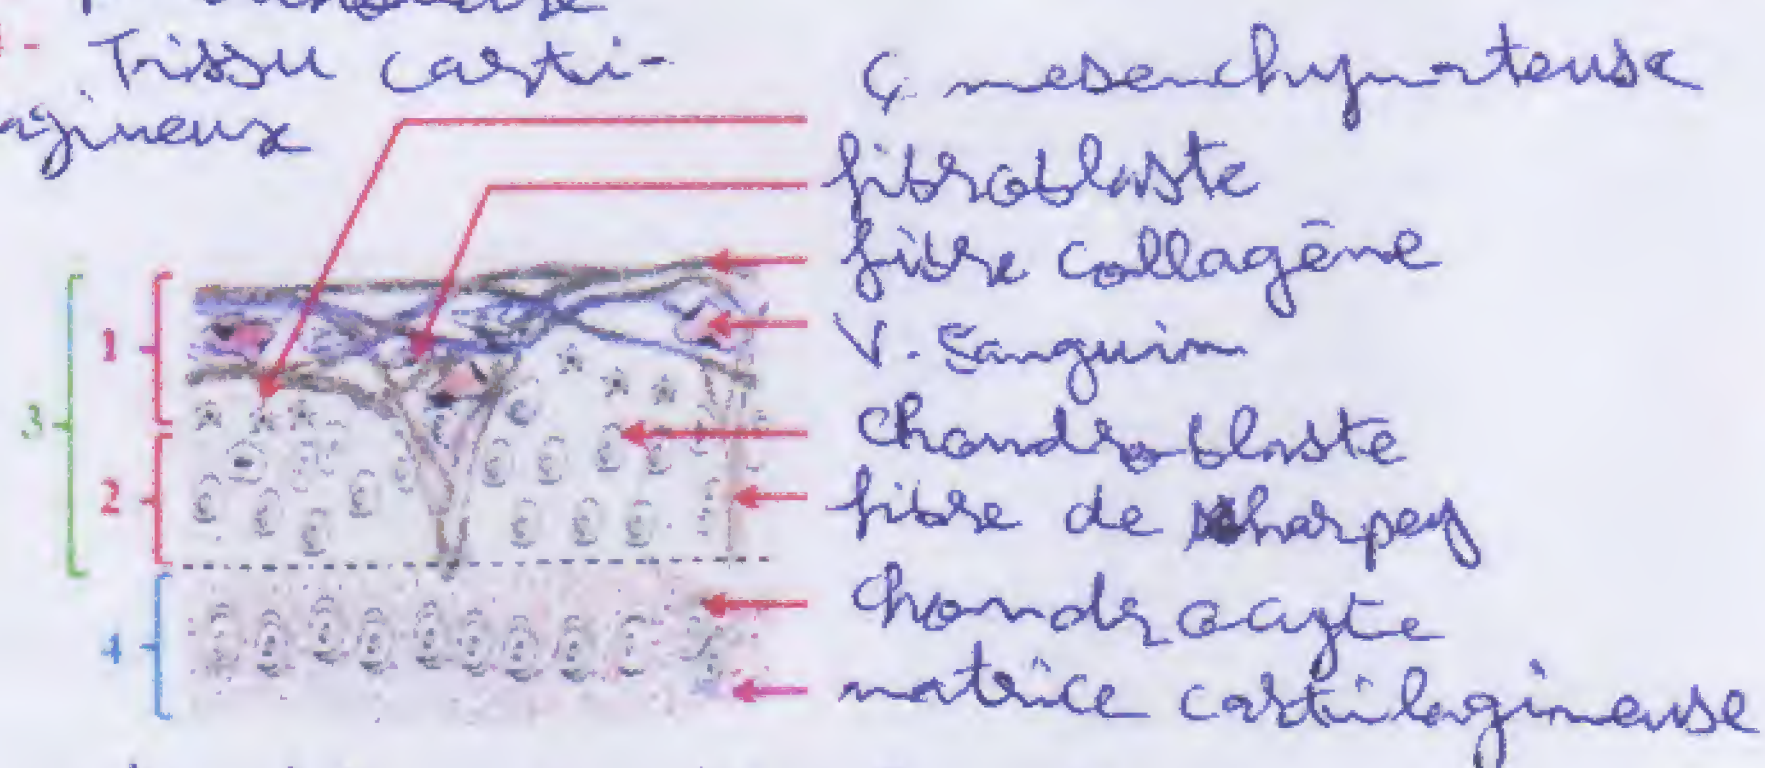 4- Tissu carti-
lagineux
C. mesenchymateuse
fibroblaste
fibre collagène
V. Sanguin
1
3
chondroblaste
2
fibre de sharpey
chondrocyte
4
matrice cartilagineuse